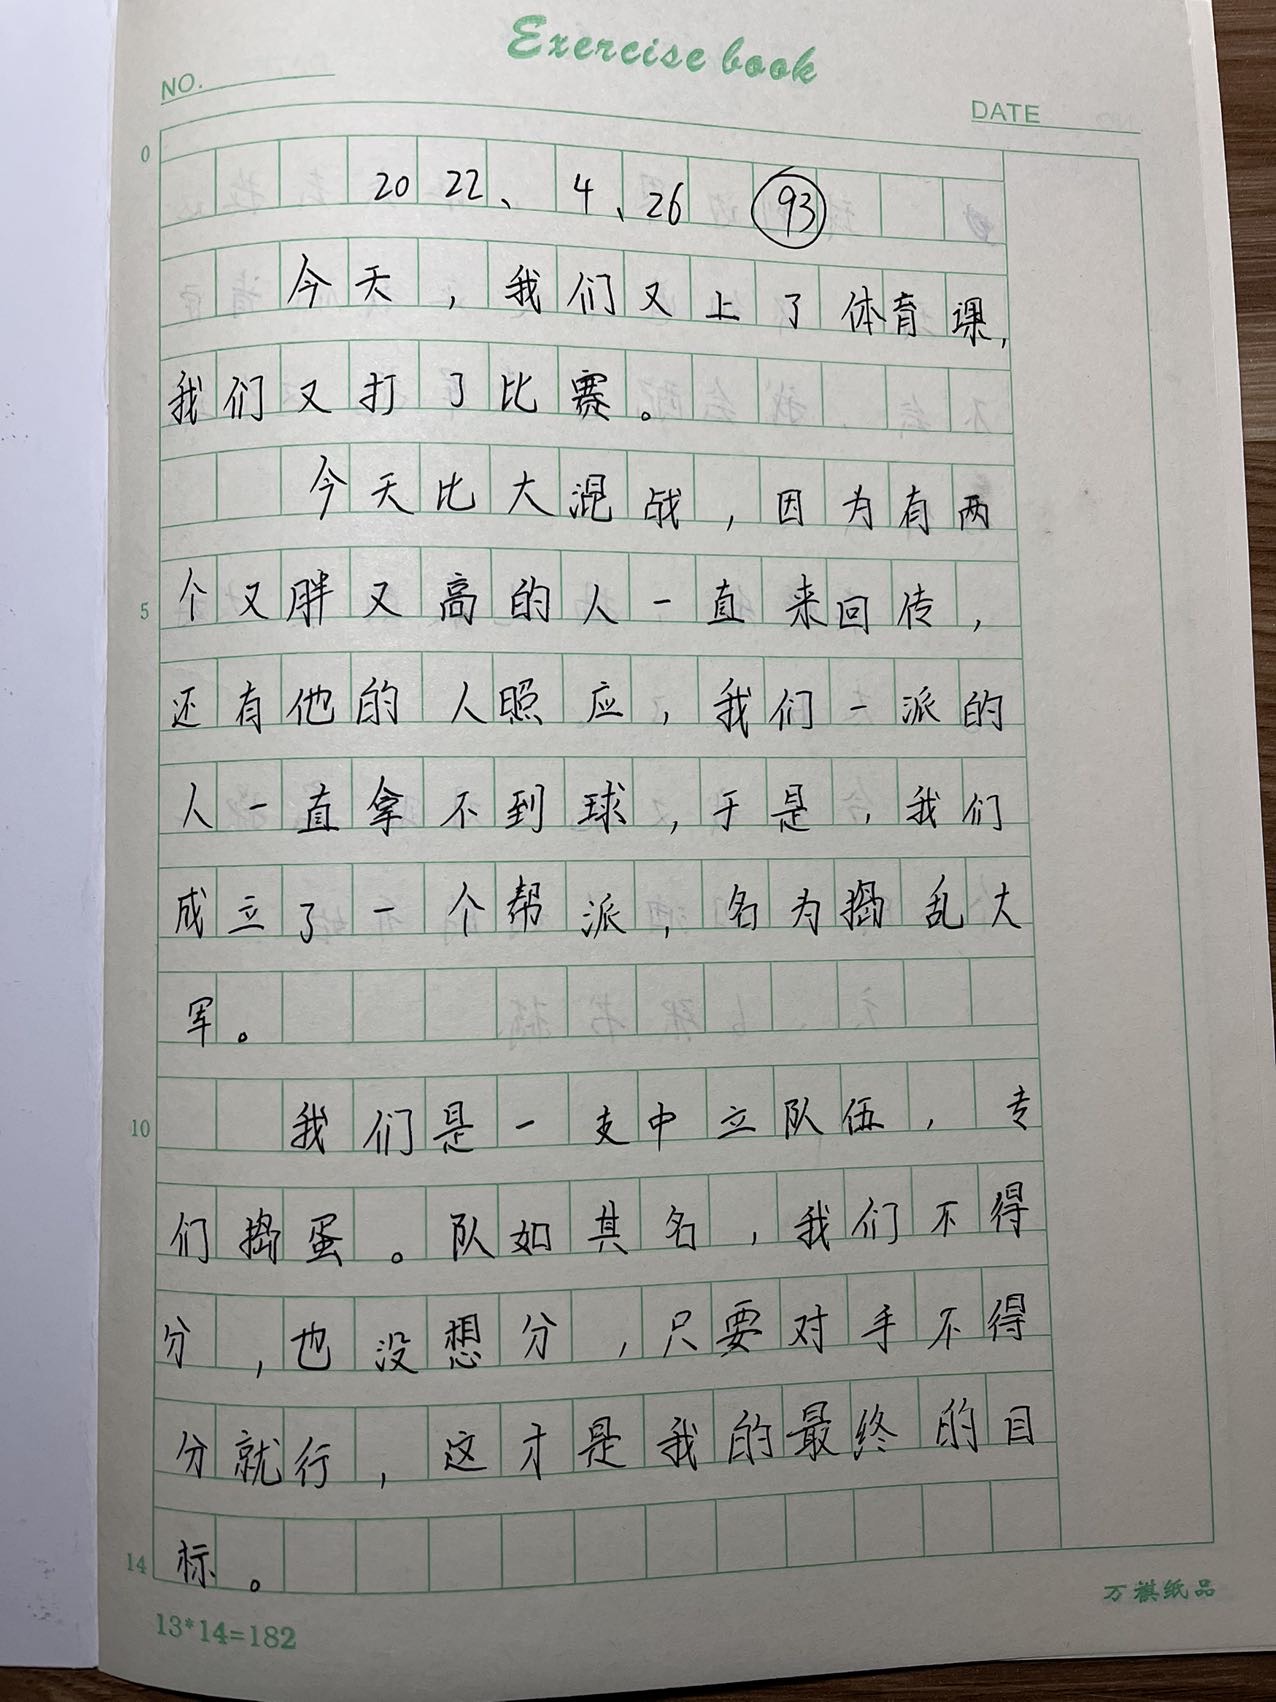 Exercise book
NO.
DATE
0
2022、4、26 93
今天，我们又上了体育课，
我们又打了比赛。
今天比大混战，因为有两
5
个又胖又高的人一直来回传，
还有他的人照应，我们一派的
人一直拿不到球，于是，我们
成立了一个帮派，名为捣乱大
军。
10
我们是一支中立队伍，专
们捣蛋。队如其名，我们不得
分，也没想分，只要对手不得
分就行，这才是我的最终的目
14
标。
万祺纸品
13*14=182